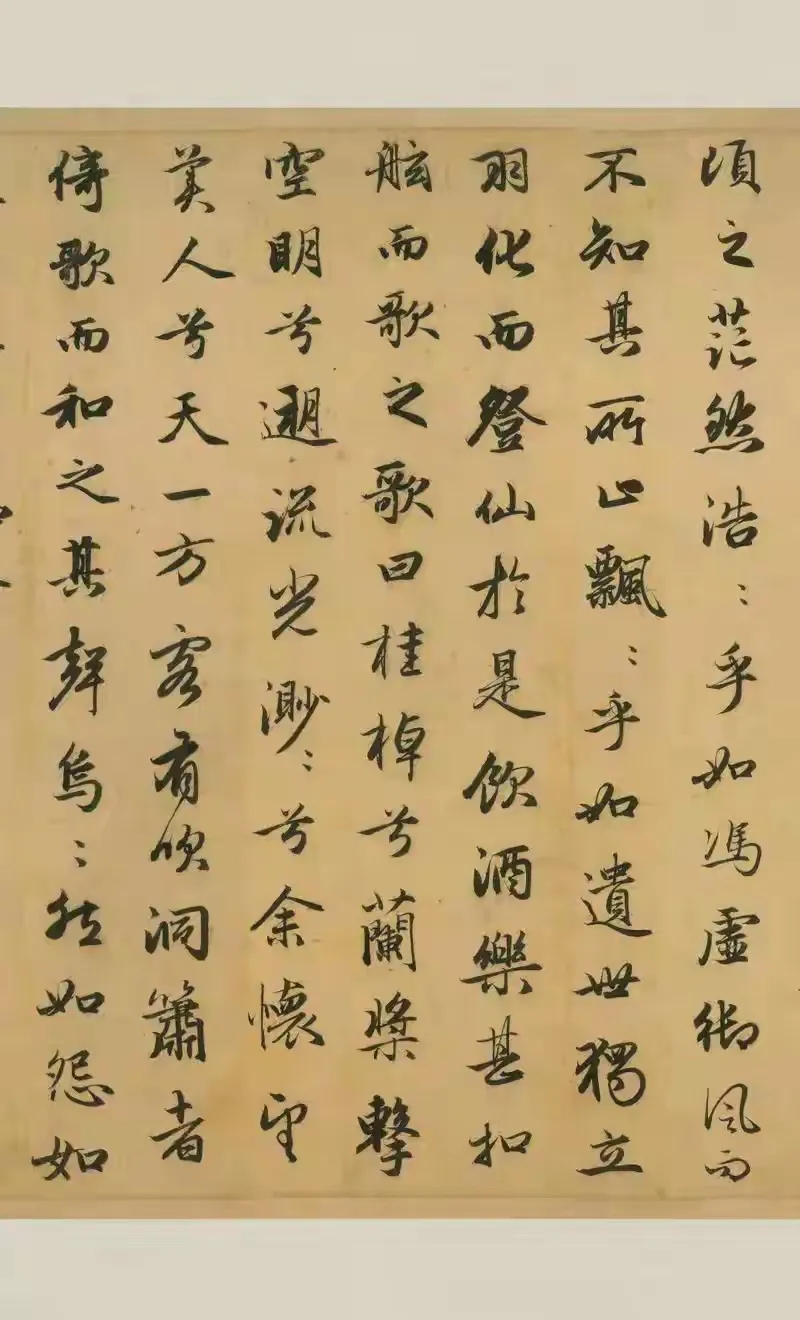 頃之茫然浩〻乎如馮虛御風而
不知其所止飄〻乎如遺世獨立
羽化而登仙於是飲酒樂甚扣
舷而歌之歌曰桂棹兮蘭槳擊
空明兮遡流光渺〻兮余懷望
美人兮天一方客有吹洞簫者
倚歌而和之其聲烏〻然如怨如